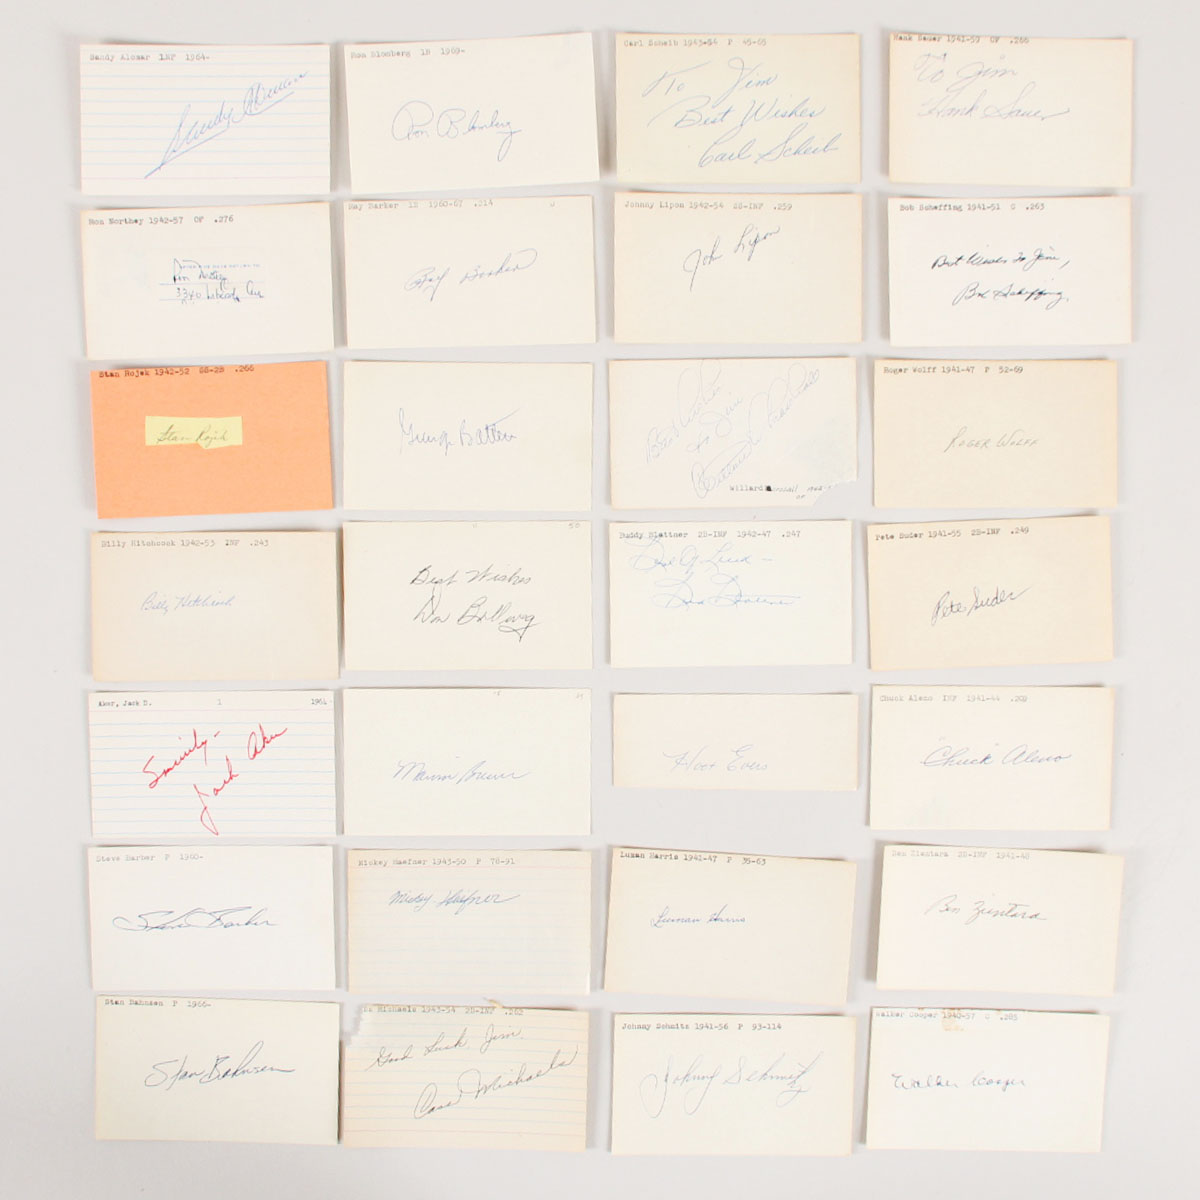 Sandy Alomar INF 1964-
Sandy Alomar
Ron Blomberg 1B 1969-
Ron Blomberg
Carl Scheib 1943-54 P 45-65
To Jim
Best Wishes
Carl Scheib
Hank Sauer 1941-59 OF .266
To Jim
Hank Sauer
Ron Northey 1942-57 OF .276
Ron Northey
Ray Barker 1B 1960-67 .214
Ray Barker
Johnny Lipon 1942-54 SS-INF .259
John Lipon
Bob Scheffing 1941-51 C .263
Best Wishes to Jim,
Bob Scheffing
Stan Rojek 1942-52 SS-2B .266
Stan Rojek
George Batten
Best Wishes
to Jim
Willard Marshall
Willard Marshall
OF
Roger Wolff 1941-47 P 52-69
ROGER WOLFF
Billy Hitchcock 1942-53 INF .243
Billy Hitchcock
50
Best Wishes
Don Bollweg
Buddy Blattner 2B-INF 1942-47 .247
Best Of Luck -
Bud Blattner
Pete Suder 1941-55 2B-INF .249
Pete Suder
Aker, Jack D. 1 1964-
Sincerely-
Jack Aker
Marvin Breuer
Hoot Evers
Chuck Aleno INF 1941-44 .209
"Chuck" Aleno
Steve Barber P 1960-
Steve Barber
Mickey Haefner 1943-50 P 78-91
Mickey Haefner
Luman Harris 1941-47 P 35-63
Luman Harris
Ben Zientara 2B-INF 1941-48
Ben Zientara
Stan Bahnsen P 1966-
Stan Bahnsen
Michaels 1943-54 2B-INF .262
Good Luck, Jim.
Cass Michaels
Johnny Schmitz 1941-56 P 93-114
Johnny Schmitz
Walker Cooper 1940-57 C .285
Walker Cooper